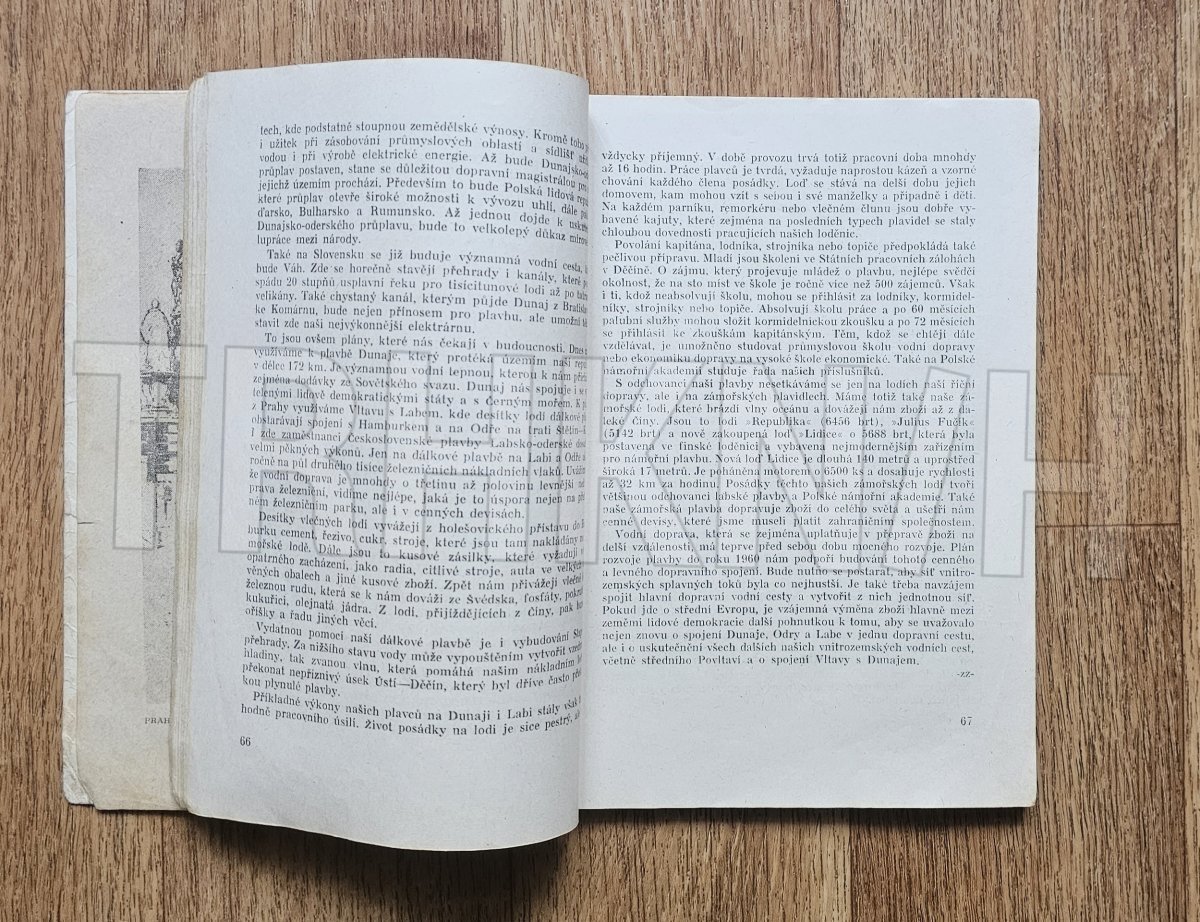 tech, kde podstatně stoupnou zemědělské výnosy. Kromě toho
i užitek při zásobování průmyslových oblastí a sídlišť
vodou i při výrobě elektrické energie. Až bude
průplav postaven, stane se důležitou dopravní magistrálou
jejichž územím prochází. Především to bude Polská lidová
které průplav otevře široké možnosti k vývozu uhlí, dále
ďarsko, Bulharsko a Rumunsko. Až jednou dojde k
Dunajsko-oderského průplavu, bude to velkolepý důkaz
lupráce mezi národy.
Také na Slovensku se již buduje významná vodní cesta,
bude Váh. Zde se horečně stavějí přehrady i kanály, které
spádu 20 stupňů usplavní řeku pro tisícitunové lodi až po
velikány. Také chystaný kanál, kterým půjde Dunaj z
ke Komárnu, bude nejen přínosem pro plavbu, ale umožní
stavit zde naši nejvýkonnější elektrárnu.
To jsou ovšem plány, které nás čekají v budoucnosti. Dnes
využíváme k plavbě Dunaje, který protéká územím naší
v délce 172 km. Je významnou vodní tepnou, kterou k nám
zejména dodávky ze Sovětského svazu. Dunaj nás spojuje i se
lidově demokratickými státy a s Černým mořem.
z Prahy využíváme Vltavu s Labem, kde desítky lodí dálkové
obstarávají spojení s Hamburkem a na Odře na trati
I zde zaměstnanci Československé plavby Labsko-oderské
velmi pěkných výkonů. Jen na dálkové plavbě na Labi a Odře
ročně na půl druhého tisíce železničních nákladních vlaků.
že vodní doprava je mnohdy o třetinu až polovinu levnější
prava železniční, vidíme nejlépe, jaká je to úspora nejen na
ném železničním parku, ale i v cenných devisách.
Desítky vlečných lodí vyvážejí z holešovického přístavu do
burku cement, řezivo, cukr, stroje, které jsou tam nakládány
mořské lodě. Dále jsou to kusové zásilky, které vyžadují
opatrného zacházení, jako radia, citlivé stroje, auta ve velkých
věných obalech a jiné kusové zboží. Zpět nám přivážejí vlečné
železnou rudu, která se k nám dováží ze Švédska, fosfáty,
kukuřici, olejnatá jádra. Z lodí, přijíždějících z Číny, pak
oříšky a řadu jiných věcí.
Vydatnou pomocí naší dálkové plavbě je i vybudování
přehrady. Za nižšího stavu vody může vypouštěním vytvořit
hladiny, tak zvanou vlnu, která pomáhá našim nákladním
překonat nepříznivý úsek Ústí—Děčín, který byl dříve často
kou plynulé plavby.
Příkladné výkony našich plavců na Dunaji i Labi stály však
hodně pracovního úsilí. Život posádky na lodi je sice pestrý,
66
PRAH
vždycky příjemný. V době provozu trvá totiž pracovní doba mnohdy
až 16 hodin. Práce plavců je tvrdá, vyžaduje naprostou kázeň a vzorné
chování každého člena posádky. Loď se stává na delší dobu jejich
domovem, kam mohou vzít s sebou i své manželky a případně i děti.
Na každém parníku, remorkéru nebo vlečném člunu jsou dobře vy-
bavené kajuty, které zejména na posledních typech plavidel se staly
chloubou dovednosti pracujících našich loděnic.
Povolání kapitána, lodníka, strojníka nebo topiče předpokládá také
pečlivou přípravu. Mladí jsou školeni ve Státních pracovních zálohách
v Děčíně. O zájmu, který projevuje mládež o plavbu, nejlépe svědčí
okolnost, že na sto míst ve škole je ročně více než 500 zájemců. Však
i ti, kdož neabsolvují školu, mohou se přihlásit za lodníky, kormidel-
níky, strojníky nebo topiče. Absolvují školu práce a po 60 měsících
palubní služby mohou složit kormidelnickou zkoušku a po 72 měsících
se přihlásit ke zkouškám kapitánským. Těm, kdož se chtějí dále
vzdělávat, je umožněno studovat průmyslovou školu vodní dopravy
nebo ekonomiku dopravy na vysoké škole ekonomické. Také na Polské
námořní akademii studuje řada našich příslušníků.
S odchovanci naší plavby nesetkáváme se jen na lodích naší říční
dopravy, ale i na zámořských plavidlech. Máme totiž také naše zá-
mořské lodi, které brázdí vlny oceánu a dovážejí nám zboží až z da-
leké Číny. Jsou to lodi »Republika« (6456 brt), »Julius Fučík«
(5142 brt) a nově zakoupená loď »Lidice« o 5688 brt, která byla
postavena ve finské loděnici a vybavena nejmodernějším zařízením
pro námořní plavbu. Nová loď Lidice je dlouhá 140 metrů a uprostřed
široká 17 metrů. Je poháněna motorem o 6500 ks a dosahuje rychlosti
až 32 km za hodinu. Posádky těchto našich zámořských lodí tvoří
většinou odchovanci labské plavby a Polské námořní akademie. Také
naše zámořská plavba dopravuje zboží do celého světa a ušetří nám
cenné devisy, které jsme museli platit zahraničním společnostem.
Vodní doprava, která se zejména uplatňuje v přípravě zboží na
delší vzdálenosti, má teprve před sebou dobu mocného rozvoje. Plán
rozvoje plavby do roku 1960 nám podpoří budování tohoto cenného
a levného dopravního spojení. Bude nutno se postarat, aby síť vnitro-
zemských splavných toků byla co nejhustší. Je také třeba navzájem
spojit hlavní dopravní vodní cesty a vytvořit z nich jednotnou síť.
Pokud jde o střední Evropu, je vzájemná výměna zboží hlavně mezi
zeměmi lidové demokracie další pohnutkou k tomu, aby se uvažovalo
nejen znovu o spojení Dunaje, Odry a Labe v jednu dopravní cestu,
ale i o uskutečnění všech dalších našich vnitrozemských vodních cest,
včetně středního Povltaví a o spojení Vltavy s Dunajem.
-zz-
67
TRHKNIH